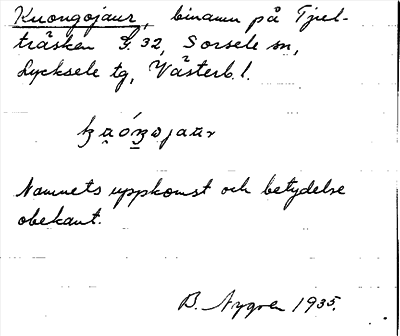 Kuongojaur, binamn på Tjel-
träsken G. 32, Sorsele sn,
Lycksele tg, Västerb. l.
Namnets uppkomst och betydelse
obekant.
B. Nygren 1935.